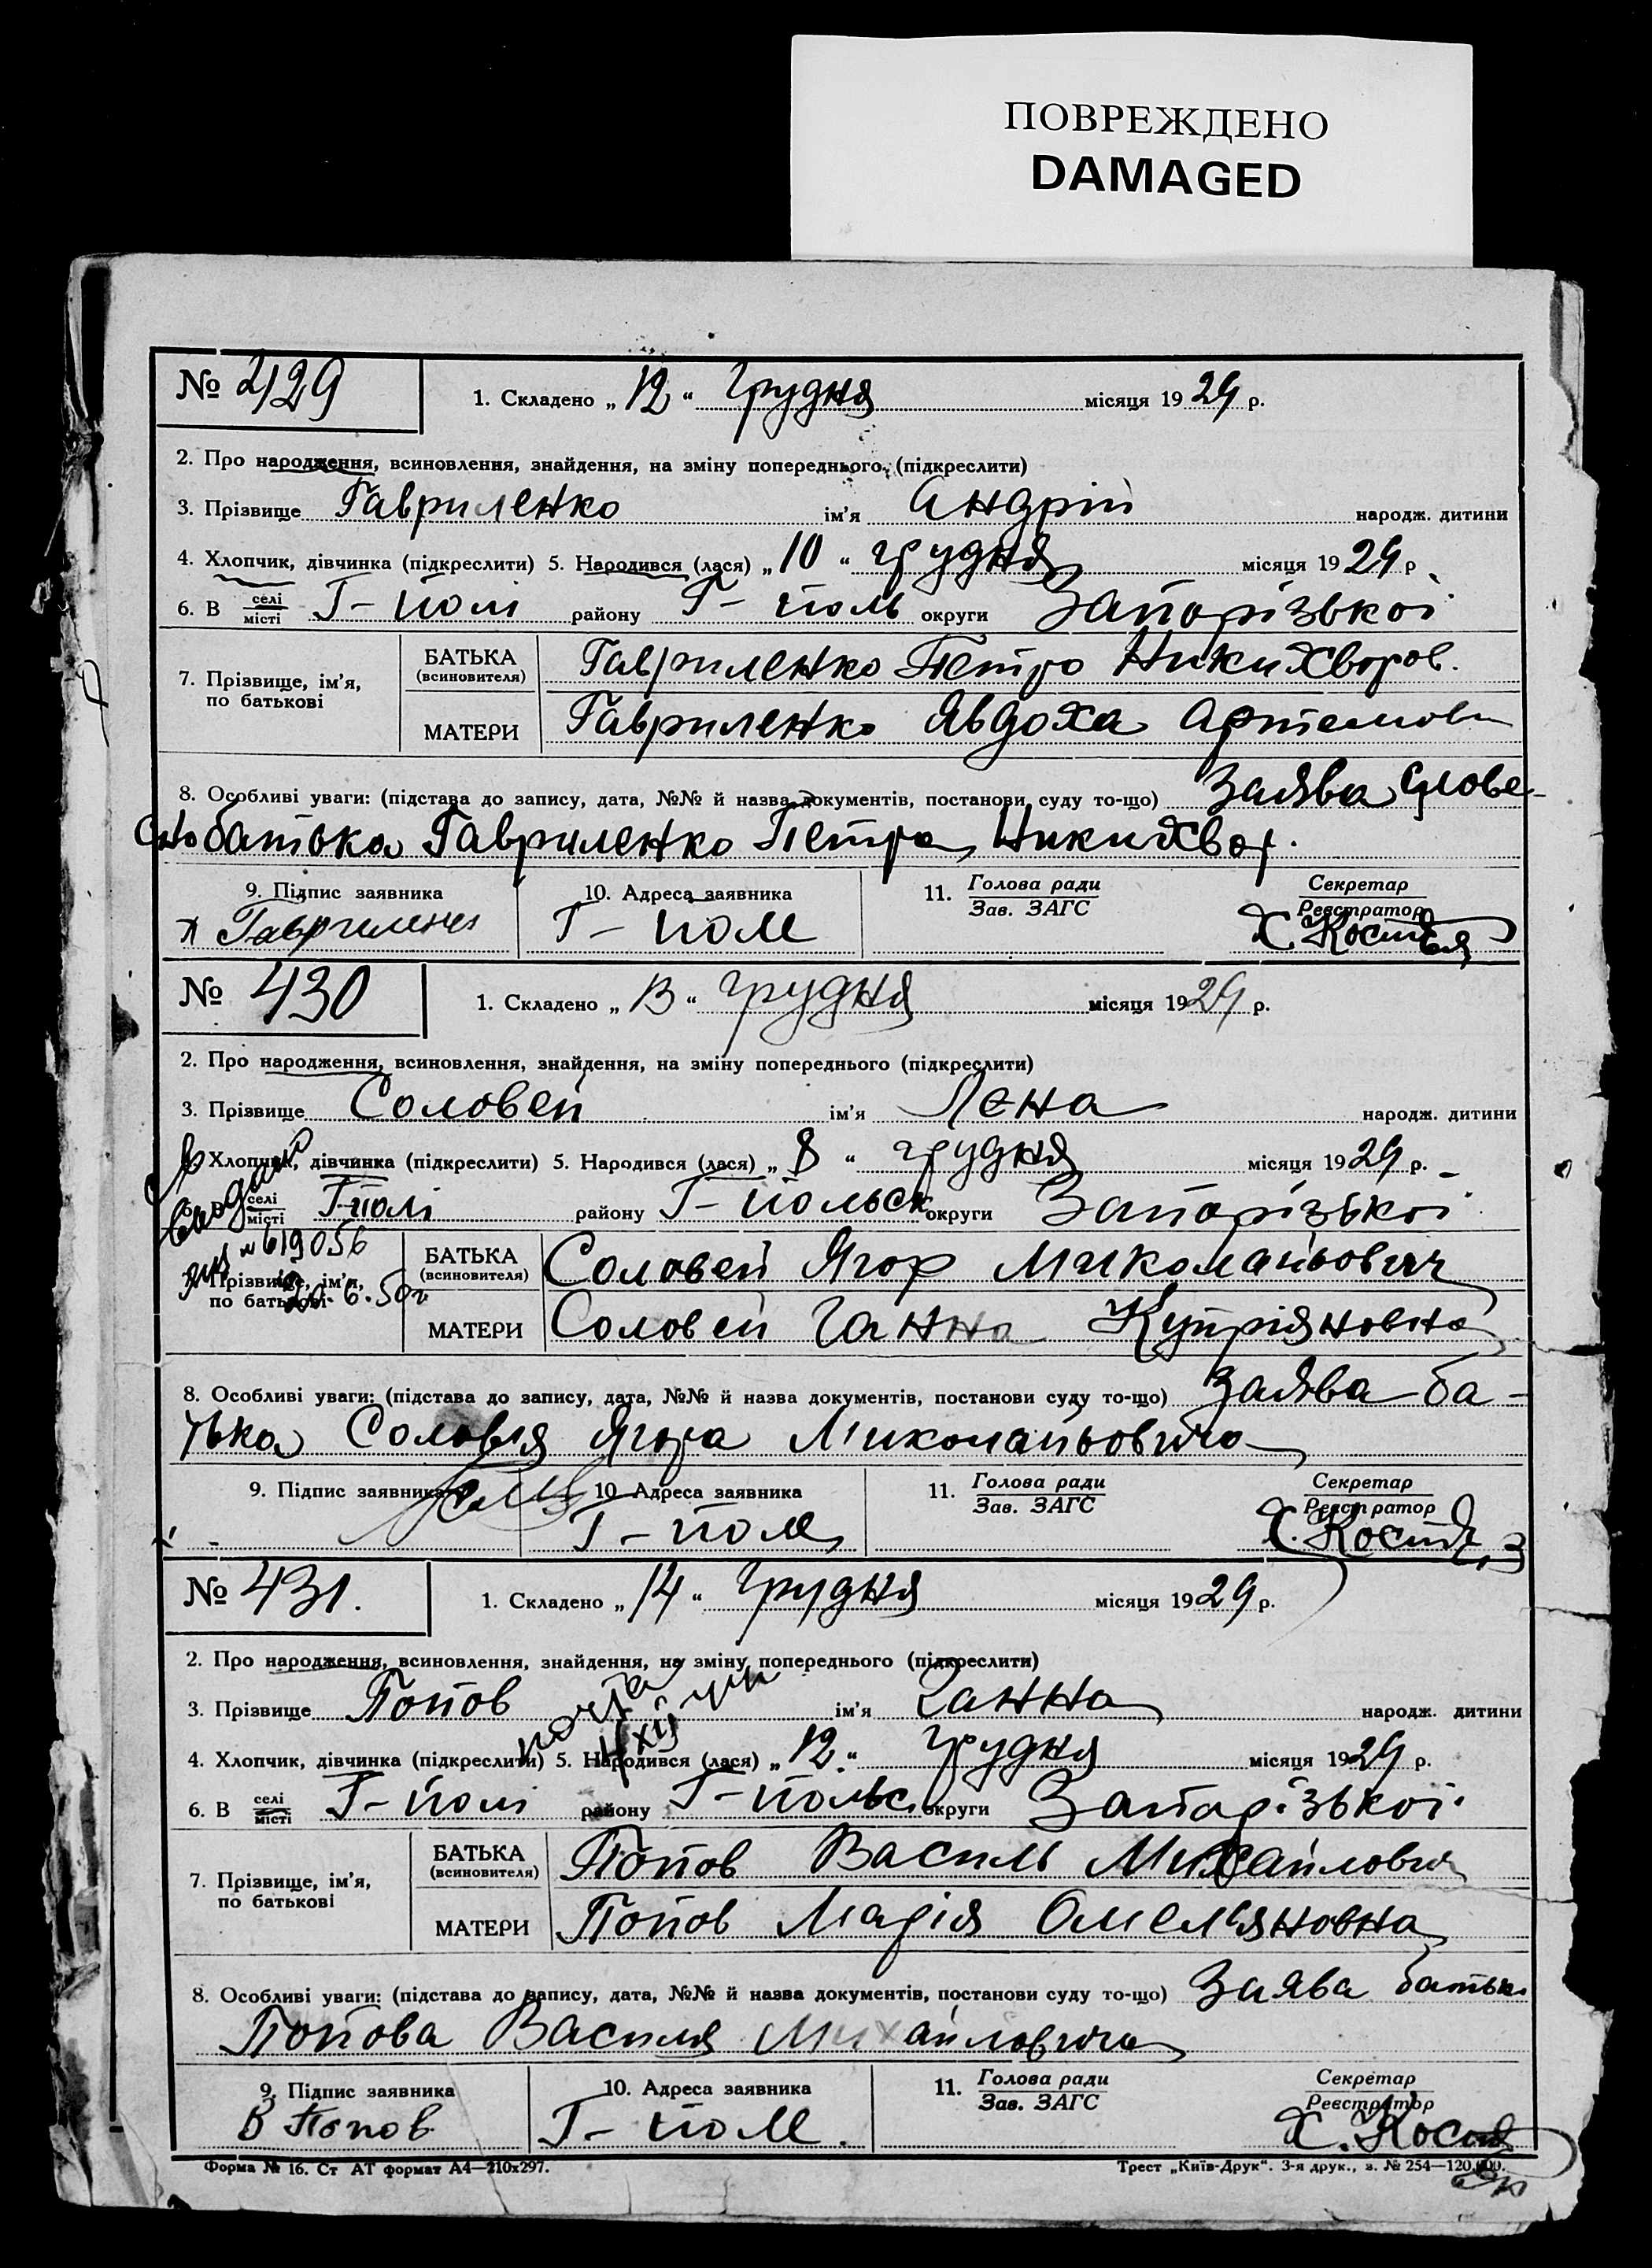 ПОВРЕЖДЕНО
DAMAGED
№ 429
1. Складено „12“ Грудня місяця 1929 р.
2. Про народження, всиновлення, знайдення, на зміну попереднього (підкреслити)
3. Прізвище Гавриленко ім’я Андрій народж. дитини
4. Хлопчик, дівчинка (підкреслити) 5. Народився (лася) „10“ грудня місяця 1929 р
6. В селі місті Г-полі району Г-поль округи Запорізької
7. Прізвище, ім’я, по батькові
БАТЬКА (всиновителя) Гавриленко Петро Никихворов.
МАТЕРИ Гавриленко Явдоха Артемовн
8. Особливі уваги: (підстава до запису, дата, №№ й назва документів, постанови суду то-що) Заява слове-
сно батька Гавриленко Петра Никихвор.
9. Підпис заявника 10. Адреса заявника 11. Голова ради Зав. ЗАГС Секретар Реєстратор
Г-поле Х.
№ 430
1. Складено „13“ Грудня місяця 1929 р.
2. Про народження, всиновлення, знайдення, на зміну попереднього (підкреслити)
3. Прізвище Соловей ім’я Лєна народж. дитини
4. Хлопчик, дівчинка (підкреслити) 5. Народився (лася) „8“ грудня місяця 1929 р.
6. В селі місті Г-полі району Г-польськ округи Запорізької
№ 619056
6.50г
7. Прізвище, ім’я, по батькові
БАТЬКА (всиновителя) Соловей Ягор Миколайович
МАТЕРИ Соловей Ганна Купріяновна
8. Особливі уваги: (підстава до запису, дата, №№ й назва документів, постанови суду то-що) Заява ба-
тька Соловья Ягора Миколайовича
9. Підпис заявника 10 Адреса заявника 11. Голова ради Зав. ЗАГС Секретар Реєстратор
Г-поле Х.
№ 431.
1. Складено „14“ Грудня місяця 1929 р.
2. Про народження, всиновлення, знайдення, на зміну попереднього (підкреслити)
3. Прізвище Попов ім’я Ганна народж. дитини
4. Хлопчик, дівчинка (підкреслити) 5. Народився (лася) „12“ Грудня місяця 1929 р.
6. В селі місті Г-полі району Г-польс округи Запорізької
7. Прізвище, ім’я, по батькові
БАТЬКА (всиновителя) Попов Василь Михайлович
МАТЕРИ Попов Марія Омеляновна
8. Особливі уваги: (підстава до запису, дата, №№ й назва документів, постанови суду то-що) Заява батька
Попова Василя Михайловича
9. Підпис заявника 10. Адреса заявника 11. Голова ради Зав. ЗАГС Секретар Реєстратор
В Попов Г-поле. Х.
Форма № 16. Ст АТ формат А4—210x297. Трест „Київ-Друк“. 3-я друк., з. № 254—120.000.